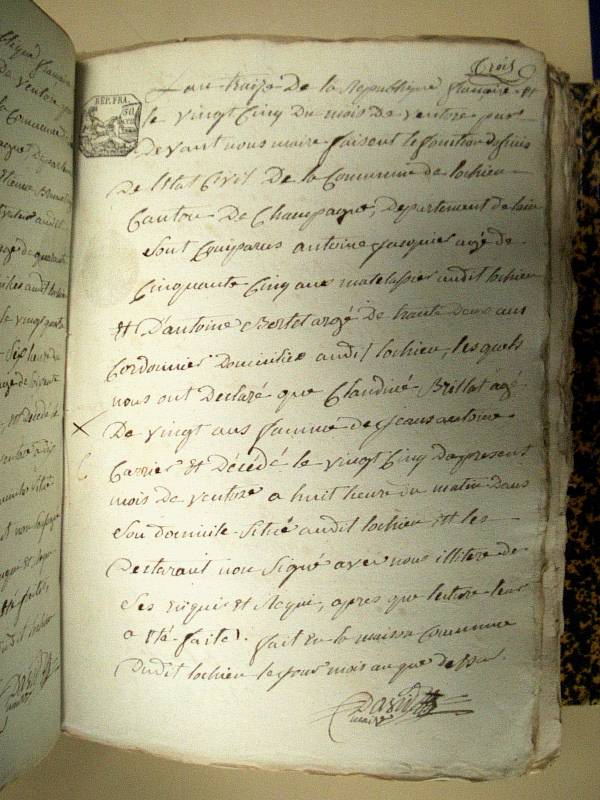 Trois
REP. FRA.
Lan treize De la Republique francaise et
le vingt Cinq Du mois De ventose par
Devant nous maire faisent le fonction
De l'Etat Civil De la Commune de lochieu
Canton De Champagne, Departement de lain
sont Comparus antoine Jasquier agé de
Cinquante Cinq ans matelassier audit lochieu
Et D'antoine Bertet argé De trante Deux ans
Cordonnier Domicilié audit lochieu, les quels
nous ont Declaré que Claudine Brillat agé
De vingt ans famme de Jean antoine
Carrier Et Décédé le vingt Cinq Du present
mois De ventose a huit heure du matin Dans
Son domicile Sitié audit lochieu Et les
Declarant non Signé avec nous illitere De
Ses enquis Et Requi, apres que lecture leur
a Eté faite. fait En la maison Commune
Dudit lochieu les jour mois an que de Su.
David
maire